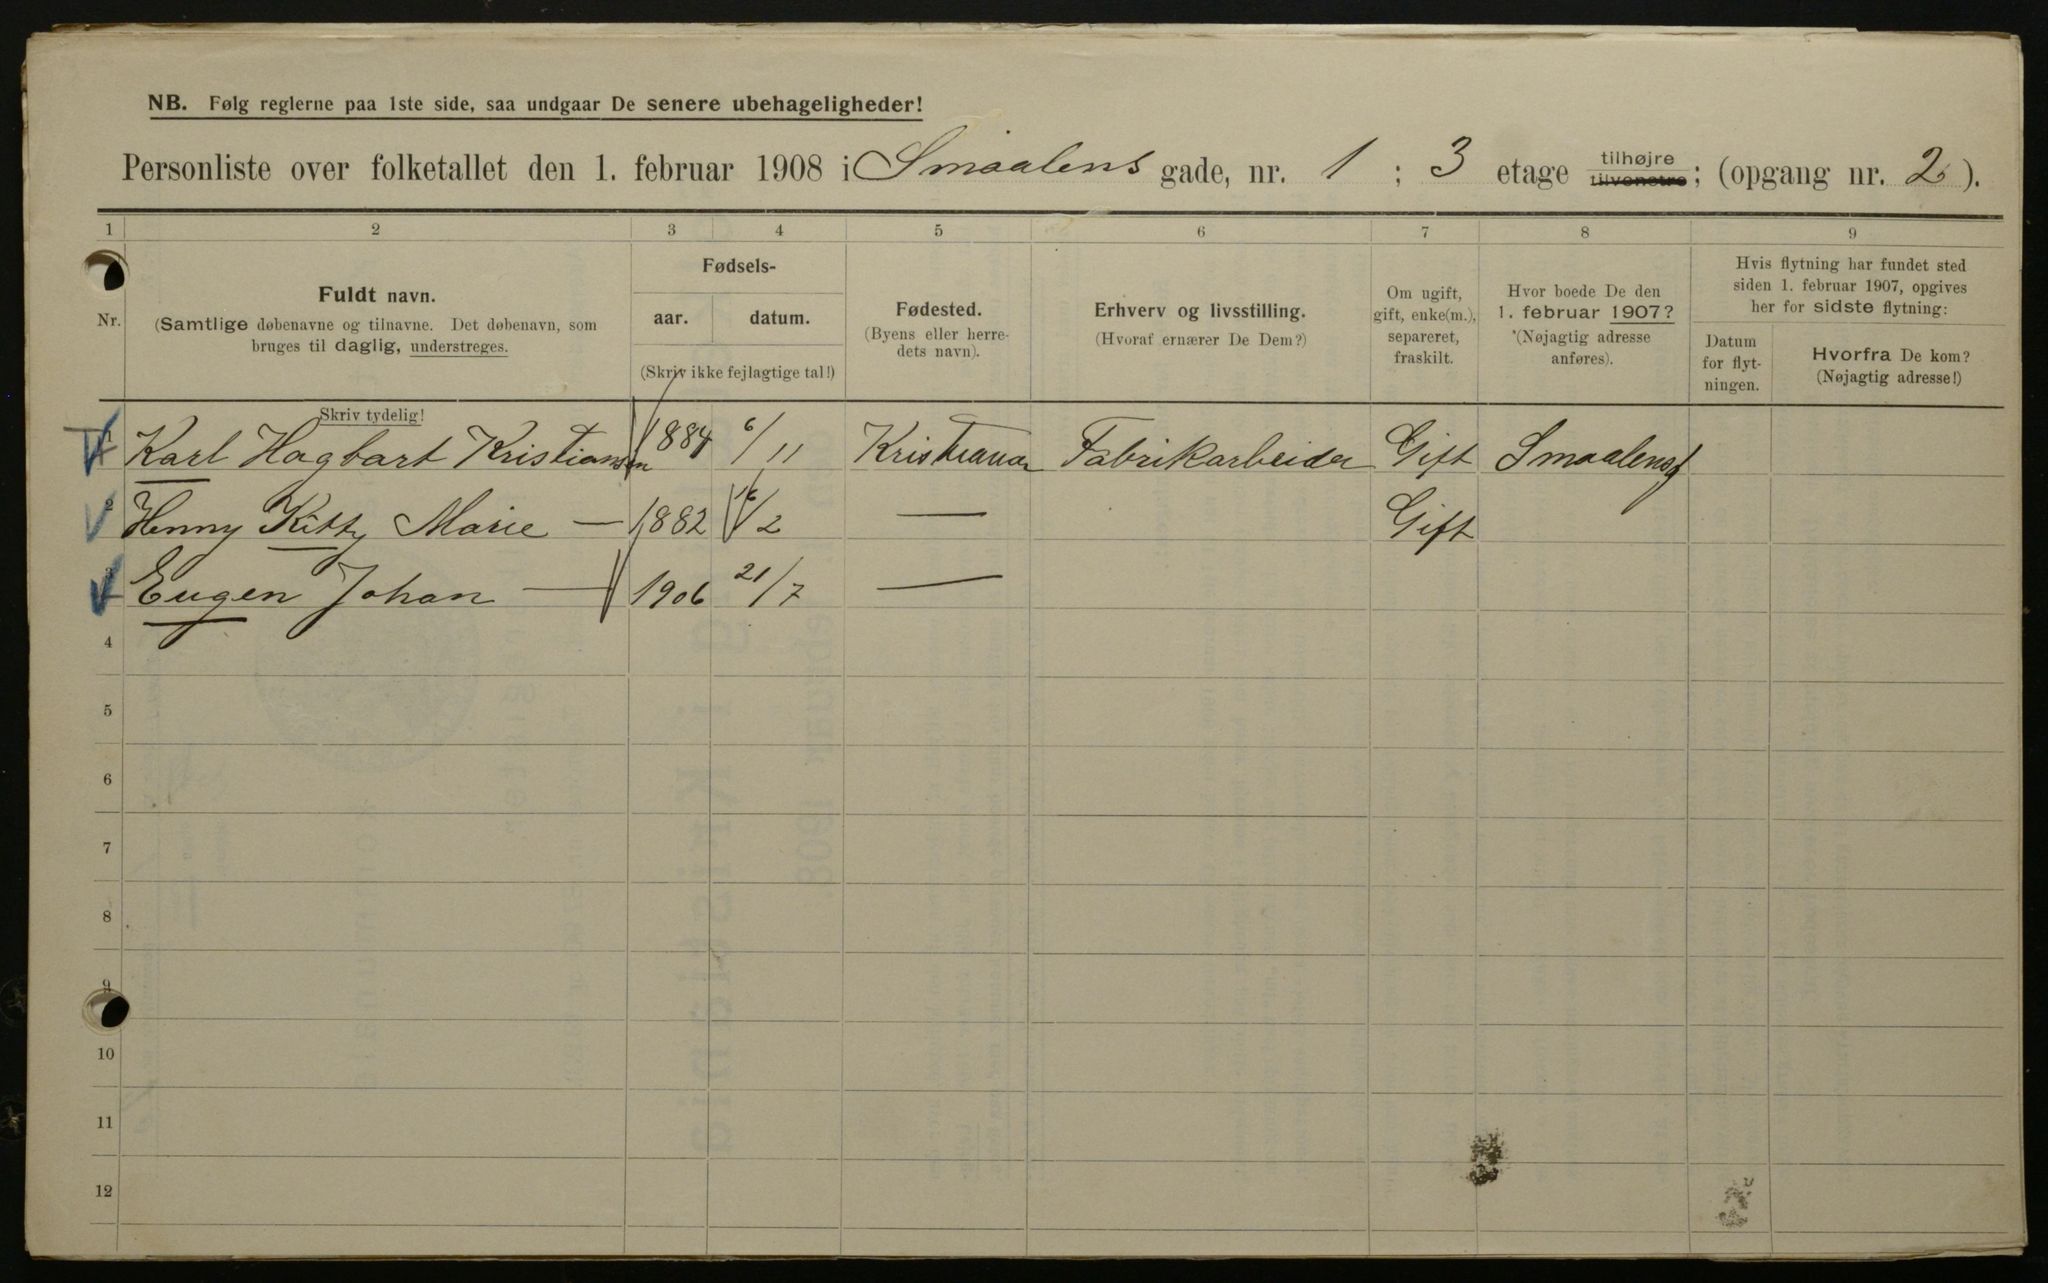 NB. Følg reglerne paa 1ste side, saa undgaar De senere ubehageligheder!
Personliste over folketallet den 1. februar 1908 i Smaalens gade, nr. 1 ; 3 etage tilhøjre tilvenstre ; (opgang nr. 2 ).
1 2 3 4 5 6 7 8 9
Nr.
Fuldt navn.
(Samtlige døbenavne og tilnavne. Det døbenavn, som
bruges til daglig, understreges.
Skriv tydelig!
Fødsels-
aar. datum.
(Skriv ikke fejlagtige tal!)
Fødested.
(Byens eller herre-
dets navn).
Erhverv og livsstilling.
(Hvoraf ernærer De Dem?)
Om ugift,
gift, enke(m.),
separeret,
fraskilt.
Hvor boede De den
1. februar 1907?
(Nøjagtig adresse
anføres).
Hvis flytning har fundet sted
siden 1. februar 1907, opgives
her for sidste flytning:
Datum
for flyt-
ningen.
Hvorfra De kom?
(Nøjagtig adresse!)
1 Karl Hagbart Kristiansen 1884 6/11 Fabrikarbeider Gift Smaalensg
2 Henny Kitty Marie — 1882 16/2 — Gift
3 Eugen Johan — 1906 21/7 —
4
5
6
7
8
9
10
11
12